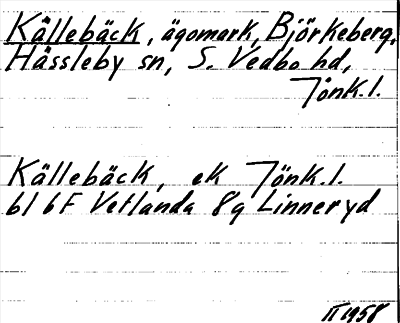 Källebäck, ägomark, Björkeberg,
Hässleby sn, S. Vedbo hd,
Jönk.l.
Källebäck, ek Jönk.l.
bl 6F Vetlanda 8g Linneryd
II 1958